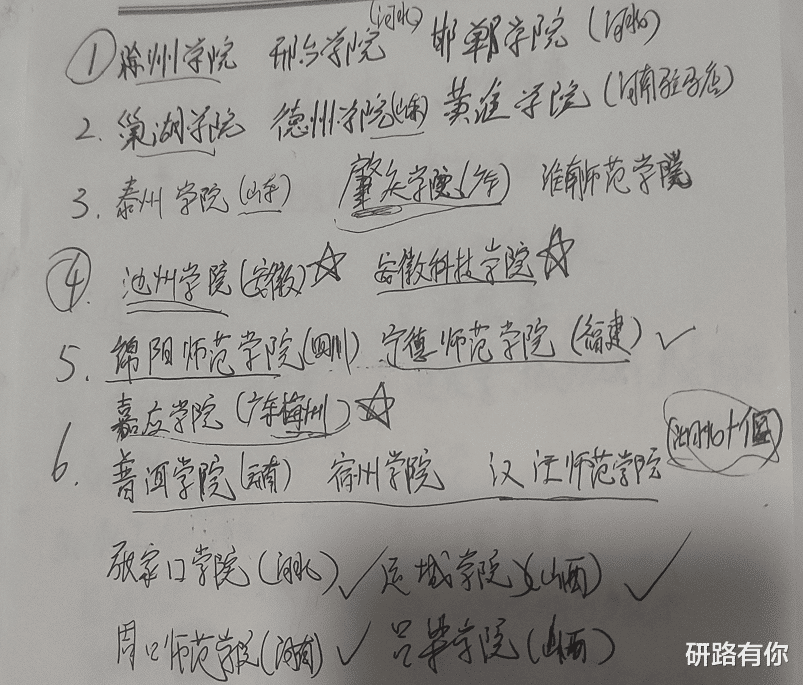 ① 滁州学院 邢台学院(河北) 邯郸学院(河北)
2. 巢湖学院 德州学院(山东) 黄淮学院(河南驻马店)
3. 泰州学院(山东) 肇庆学院(广东) 淮南师范学院
④. 池州学院(安徽)☆ 安徽科技学院☆
5. 绵阳师范学院(四川) 宁德师范学院(福建)✓
嘉应学院(广东梅州)☆
6. 普洱学院(云南) 宿州学院 汉江师范学院
张家口学院(河北)✓ 运城学院(山西)✓
周口师范学院(河南)✓ 吕梁学院(山西)
研路有你